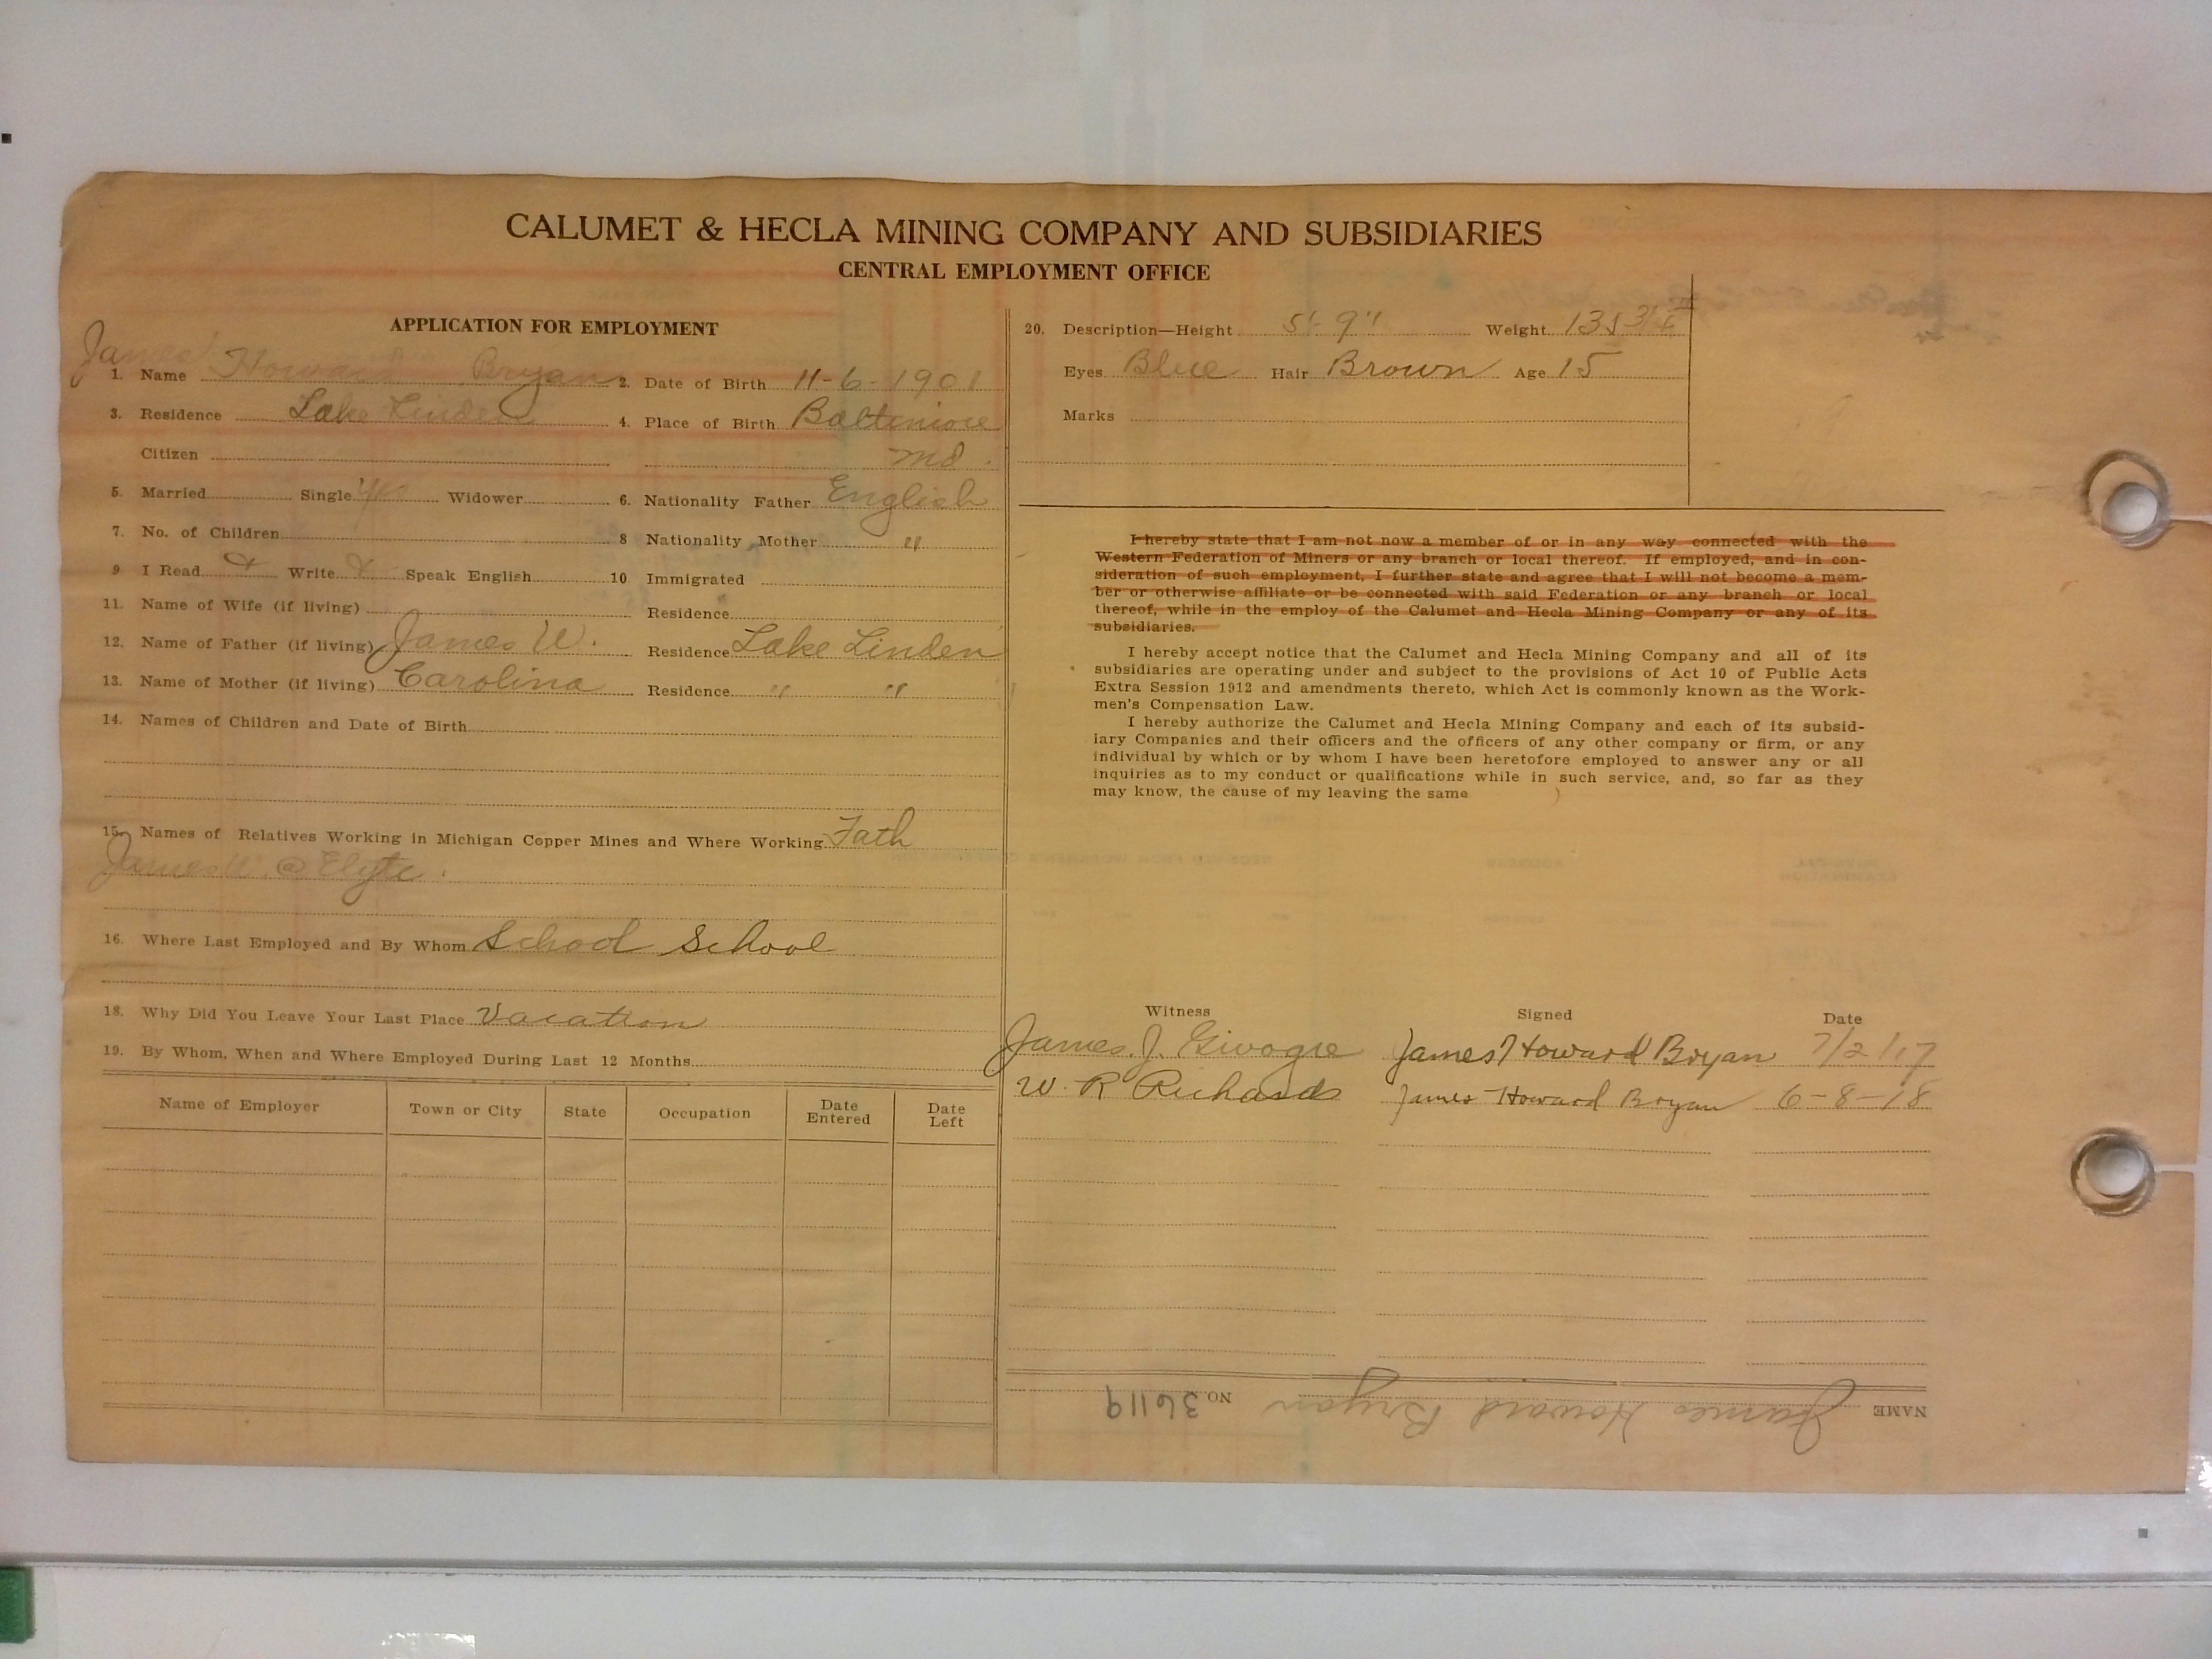 CALUMET & HECLA MINING COMPANY AND SUBSIDIARIES
CENTRAL EMPLOYMENT OFFICE
APPLICATION FOR EMPLOYMENT
James
1. Name Howard Bryan 2. Date of Birth 11-6-1901
3. Residence Lake Linden 4. Place of Birth Baltimore
Citizen Md.
5. Married Single Yes Widower 6. Nationality Father English
7. No. of Children 8 Nationality Mother "
9 I Read Write Speak English 10 Immigrated
11. Name of Wife (if living) Residence
12. Name of Father (if living) James W. Residence Lake Linden
13. Name of Mother (if living) Carolina Residence " "
14. Names of Children and Date of Birth
15. Names of Relatives Working in Michigan Copper Mines and Where Working Fath
James W. @
16. Where Last Employed and By Whom School School
18. Why Did You Leave Your Last Place Vacation
19. By Whom, When and Where Employed During Last 12 Months
Name of Employer Town or City State Occupation Date Entered Date Left
20. Description—Height 5'-9" Weight 135
Eyes Blue Hair Brown Age 15
Marks
I hereby state that I am not now a member of or in any way connected with the
Western Federation of Miners or any branch or local thereof. If employed, and in con-
sideration of such employment, I further state and agree that I will not become a mem-
ber or otherwise affiliate or be connected with said Federation or any branch or local
thereof, while in the employ of the Calumet and Hecla Mining Company or any of its
subsidiaries.
I hereby accept notice that the Calumet and Hecla Mining Company and all of its
subsidiaries are operating under and subject to the provisions of Act 10 of Public Acts
Extra Session 1912 and amendments thereto, which Act is commonly known as the Work-
men's Compensation Law.
I hereby authorize the Calumet and Hecla Mining Company and each of its subsid-
iary Companies and their officers and the officers of any other company or firm, or any
individual by which or by whom I have been heretofore employed to answer any or all
inquiries as to my conduct or qualifications while in such service, and, so far as they
may know, the cause of my leaving the same
Witness Signed Date
James J. James Howard Bryan 7/2/17
W. R Richards James Howard Bryan 6-8-18
NAME James Howard Bryan NO. 36119